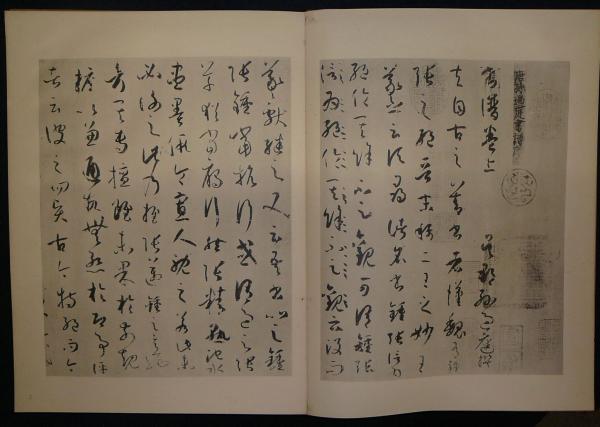 唐孫過庭書譜
書譜卷上 吳郡孫過庭撰
夫自古之善書者漢魏有鍾
張之絕晉末稱二王之妙王
羲之云頃尋諸名書鍾張信為
絕倫其餘不足觀可謂鍾張
信為絕倫其餘不足觀云沒而
羲獻繼之又云吾書比之鍾
張鍾當抗行或謂過之張
草猶當鴈行然張精熟池水
盡墨假令寡人耽之若此未
必謝之此乃推張邁鍾之意也
考其專擅雖未果於前規
摭以兼通故無慙於即事評
者云彼之四賢古今特絕而今